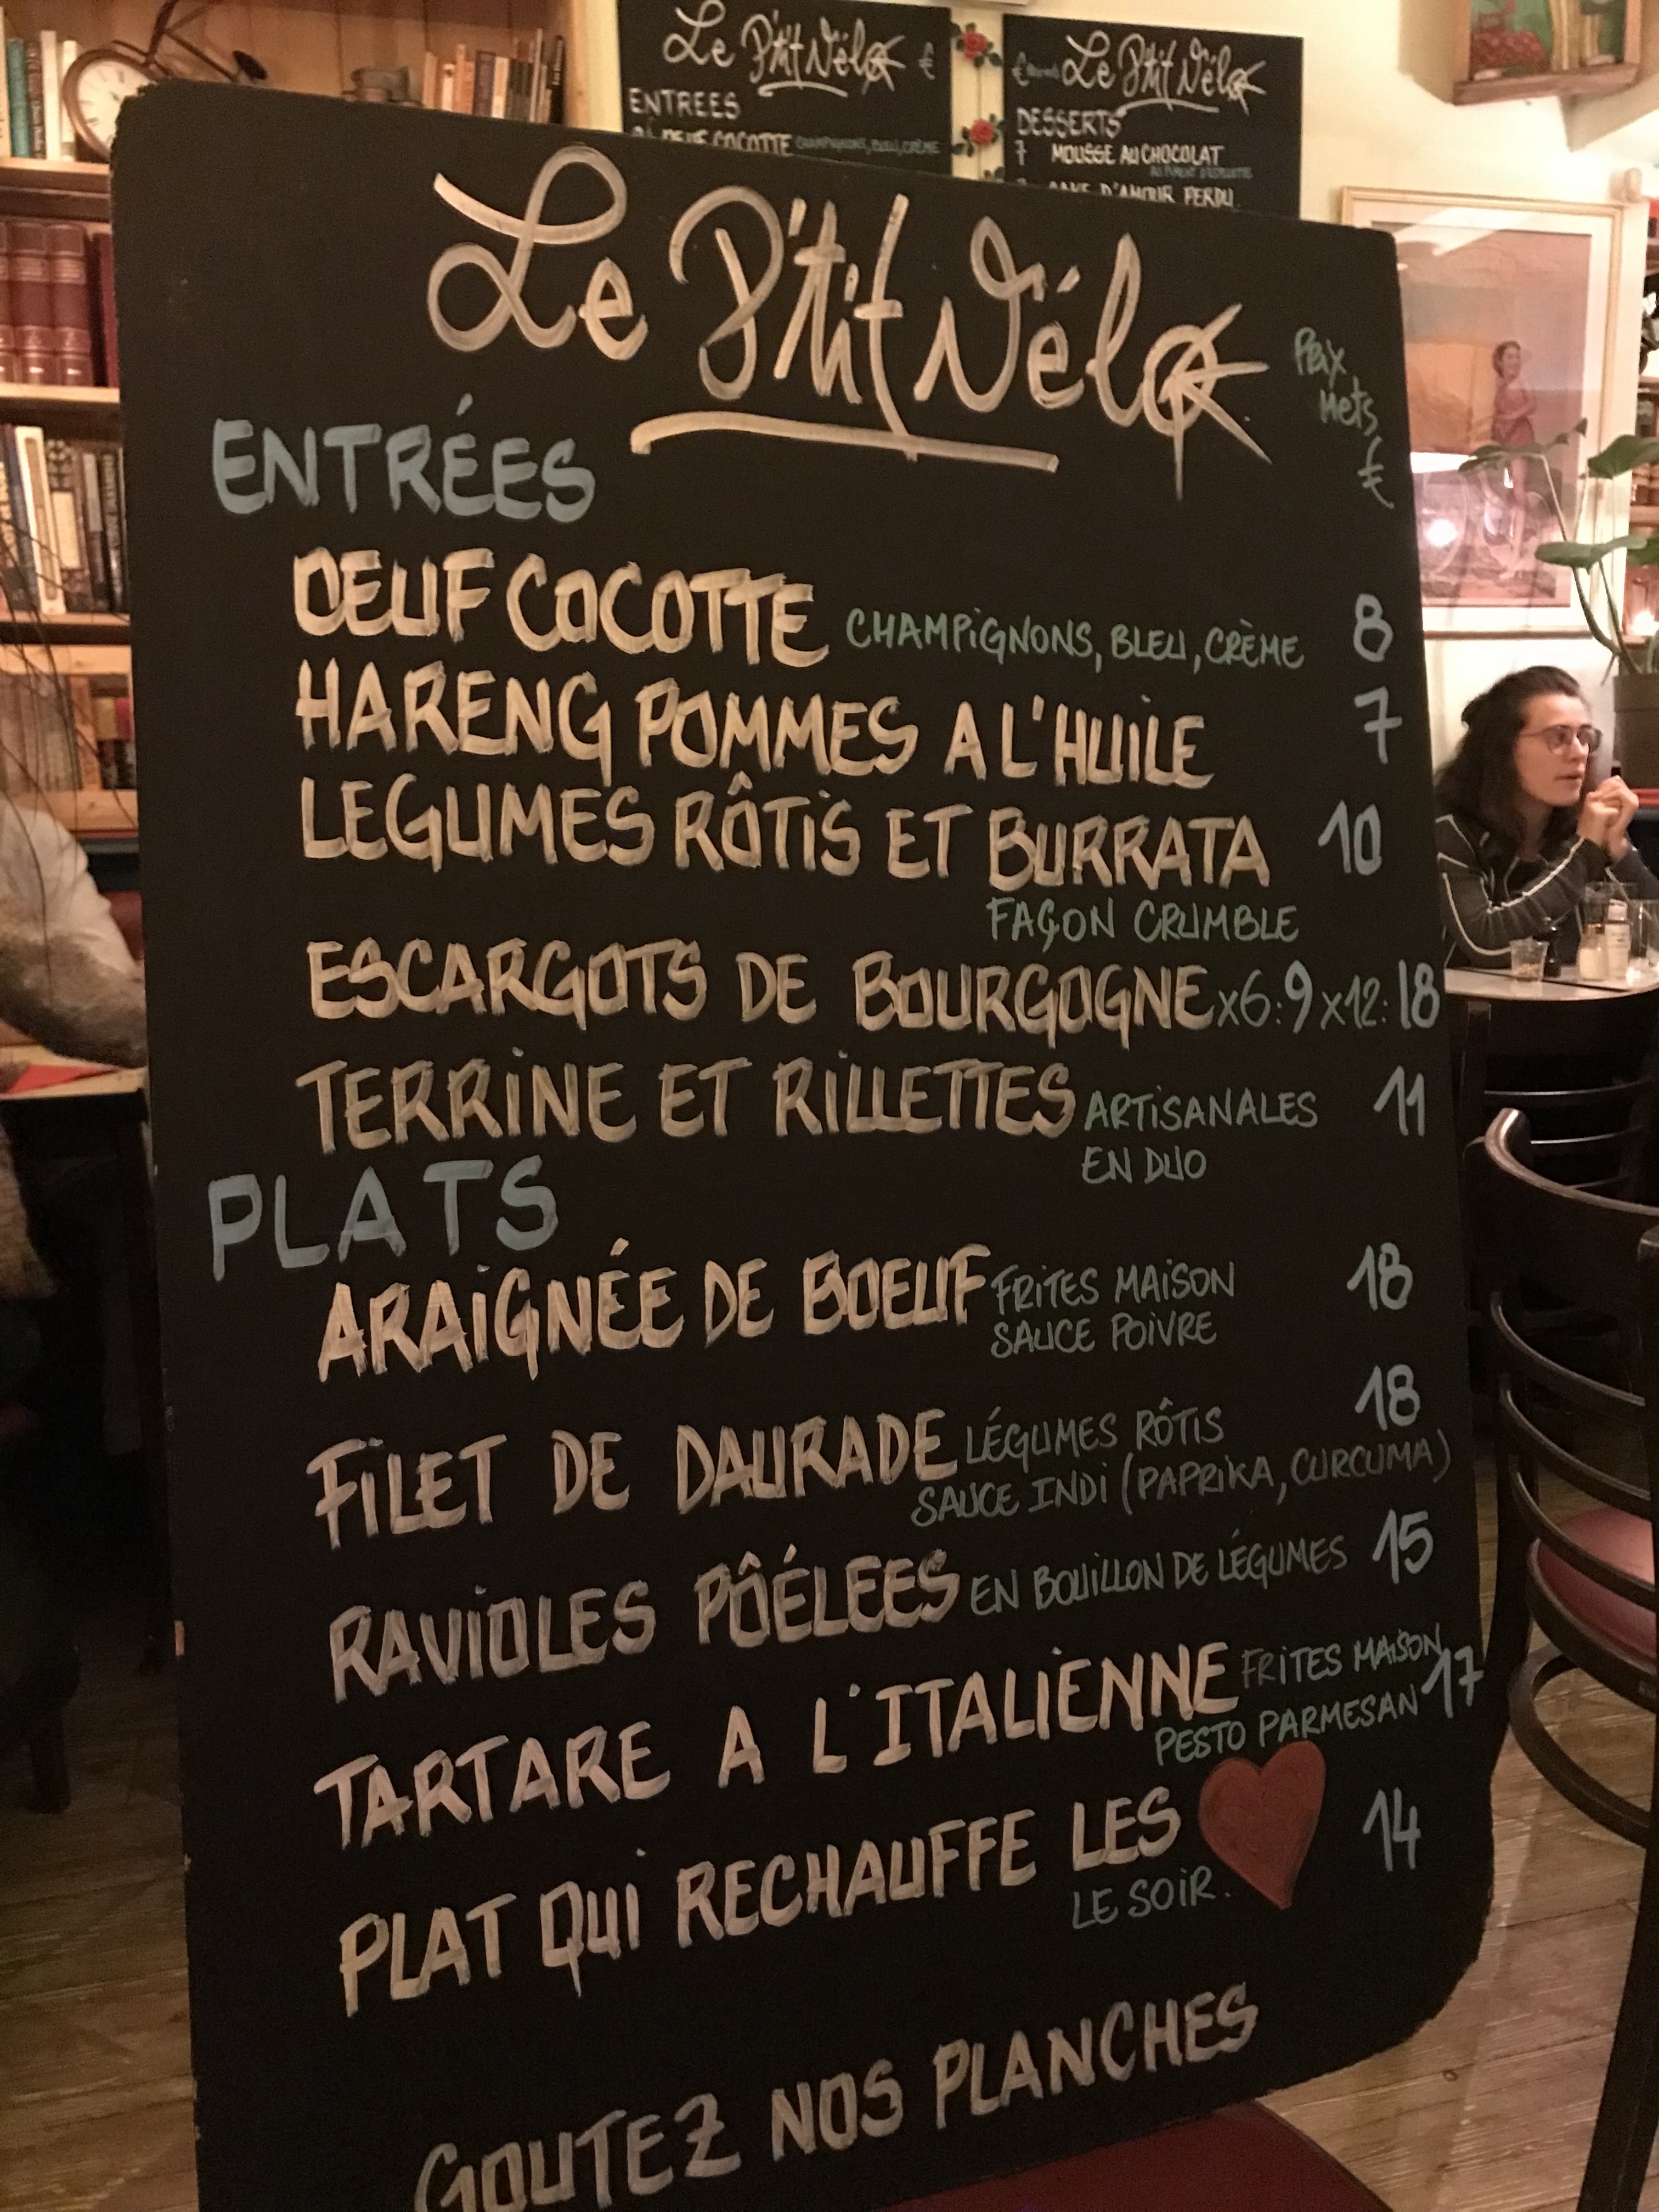 Le P'tit Vélo €
ENTREES
OEUF COCOTTE CHAMPIGNONS, BLEU, CRÈME
€ Le P'tit Vélo
DESSERTS
7 MOUSSE AU CHOCOLAT
AU PIMENT D'ESPELETTE
CAKE D'AMOUR PERDU
Le P'tit Vélo
Prix Nets, €
ENTRÉES
OEUF COCOTTE CHAMPIGNONS, BLEU, CRÈME 8
HARENG POMMES A L'HUILE 7
LEGUMES RÔTIS ET BURRATA 10
FAÇON CRUMBLE
ESCARGOTS DE BOURGOGNE x6:9 x12:18
TERRINE ET RILLETTES ARTISANALES 11
EN DUO
PLATS
ARAIGNÉE DE BOEUF FRITES MAISON 18
SAUCE POIVRE
FILET DE DAURADE LÉGUMES RÔTIS 18
SAUCE INDI (PAPRIKA, CURCUMA)
RAVIOLES PÔÉLEES EN BOUILLON DE LÉGUMES 15
TARTARE A L'ITALIENNE FRITES MAISON, 17
PESTO PARMESAN
PLAT QUI RECHAUFFE LES 14
LE SOIR.
GOUTEZ NOS PLANCHES